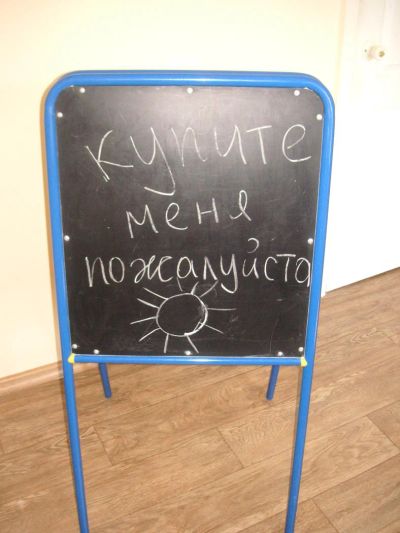 купите
меня
пожалуйста